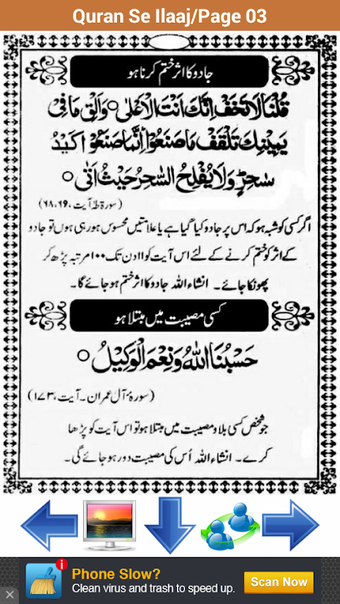 Quran Se Ilaaj/Page 03
جادو کا اثر ختم کرنا ہو
قُلْنَا لَا تَخَفْ اِنَّكَ اَنْتَ الْاَعْلٰى ○ وَاَلْقِ مَا فِیْ
یَمِیْنِكَ تَلْقَفْ مَا صَنَعُوْا ؕ اِنَّمَا صَنَعُوْا كَیْدُ
سٰحِرٍ ؕ وَلَا یُفْلِحُ السّٰحِرُ حَیْثُ اَتٰى ○
(سورۃ طٰہٰ آیت، ۶۸،۶۹)
اگر کسی کو شبہ ہو کہ اس پر جادو کیا گیا ہے یا علامتیں محسوس ہو رہی ہوں تو جادو
کے اثر کو ختم کرنے کے لئے اس آیت کو ۱۱ دن تک ۱۰۰ مرتبہ پڑھ کر
پھونکا جائے۔ انشاء اللہ جادو کا اثر ختم ہو جائے گا۔
کسی مصیبت میں مبتلا ہو
حَسْبُنَا اللّٰهُ وَنِعْمَ الْوَكِیْلُ ○
(سورۃ آل عمران۔ آیت، ۱۷۳)
جو شخص کسی بلا و مصیبت میں مبتلا ہو تو اس آیت کو پڑھا
کرے۔ انشاء اللہ اُس کی مصیبت دور ہو جائے گی۔
Phone Slow?
Clean virus and trash to speed up.
Scan Now